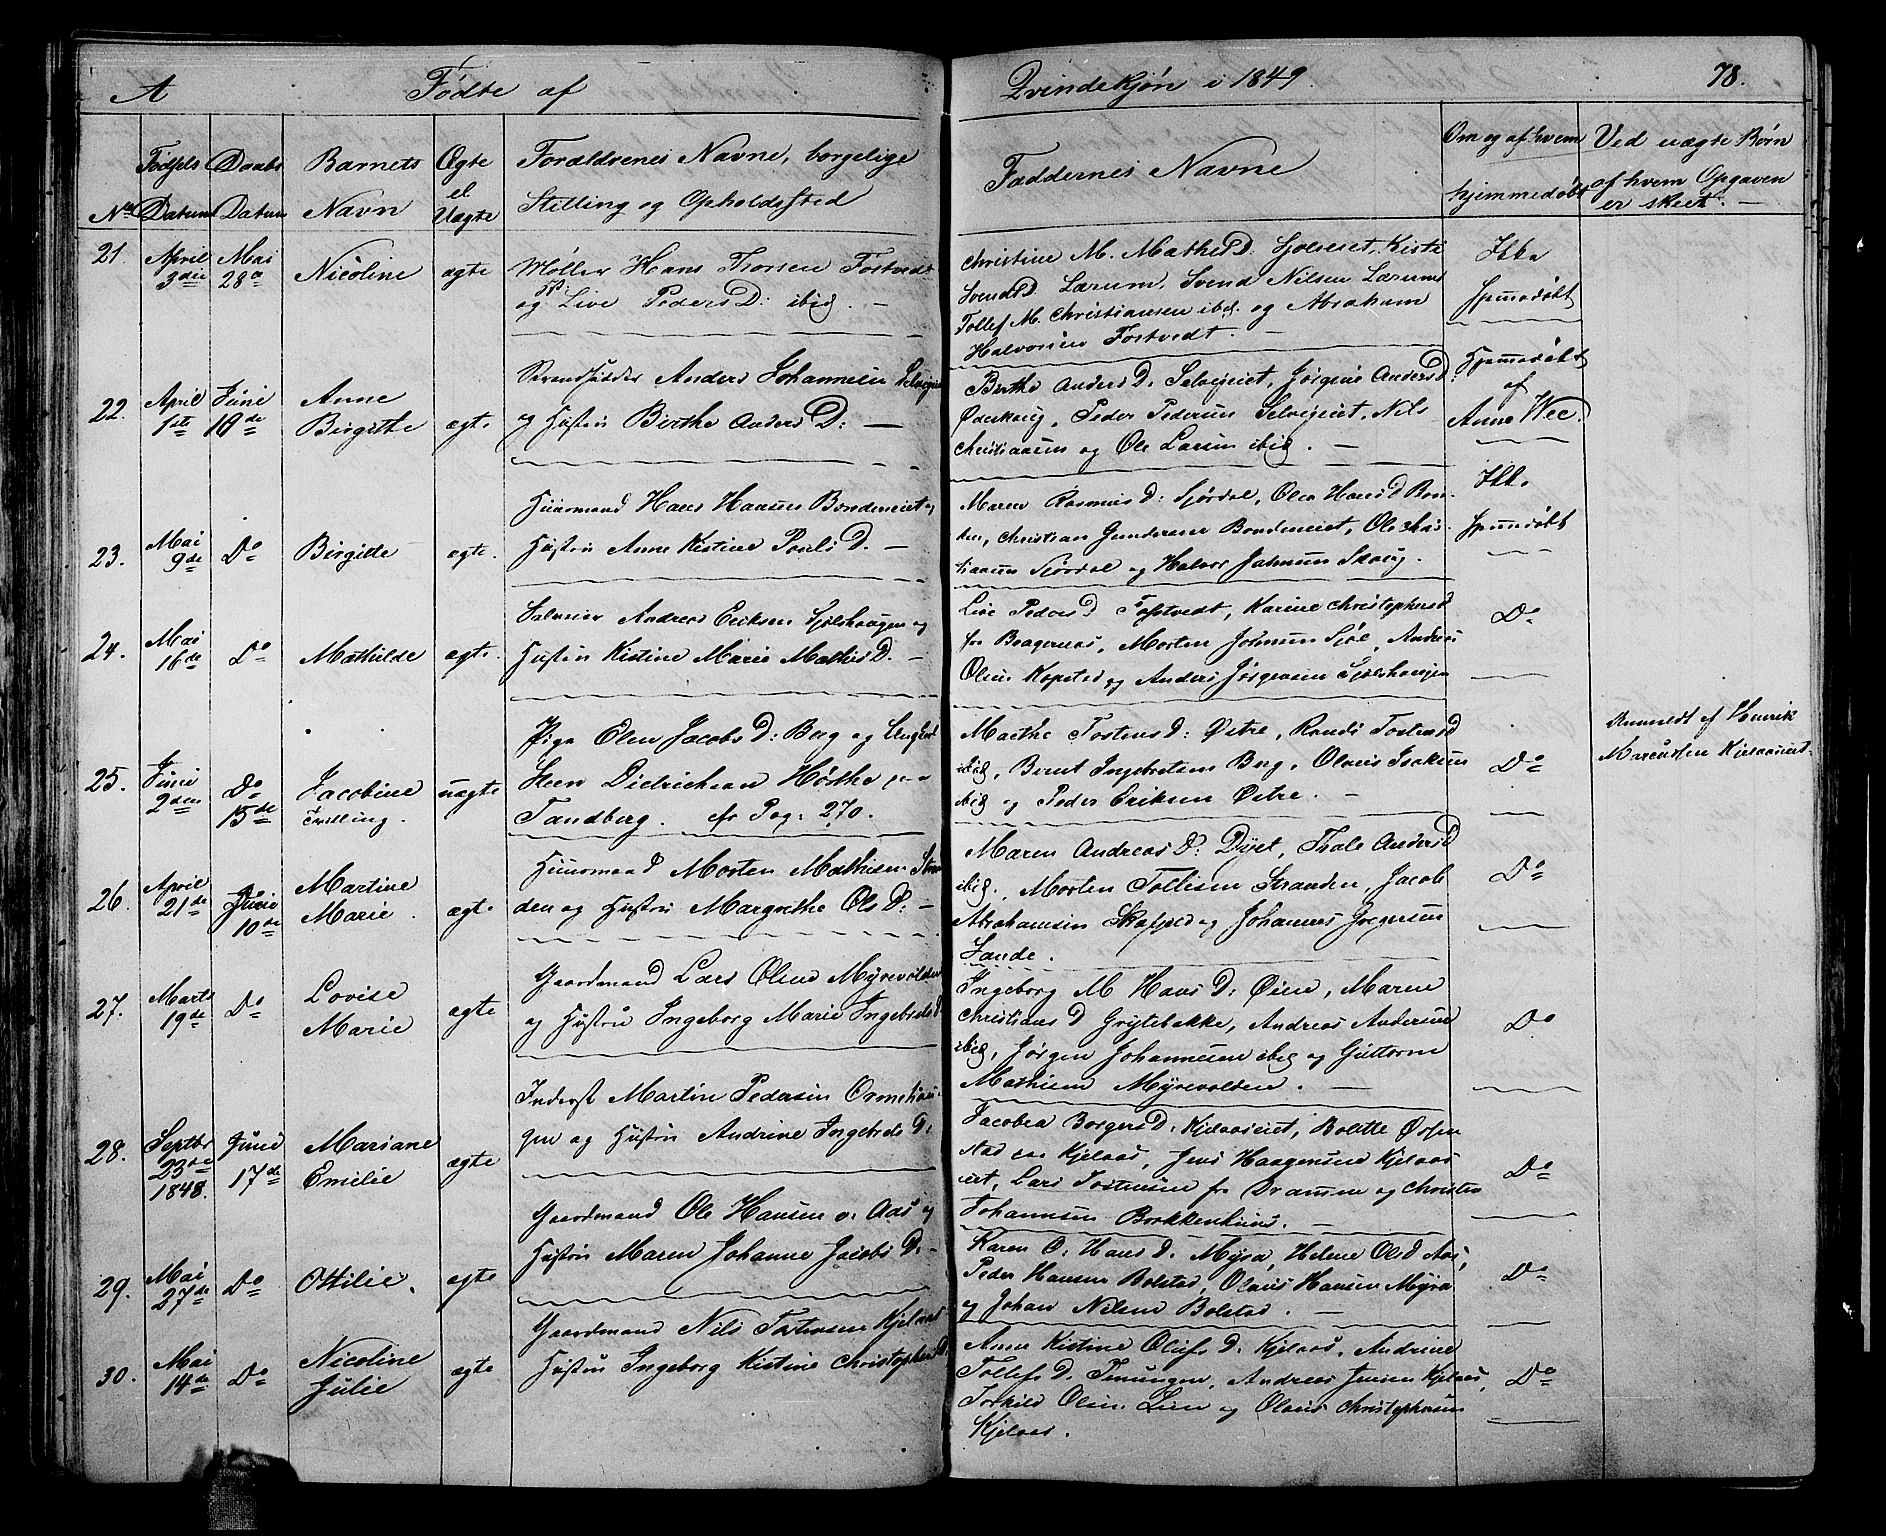 A Fødte af Qvindekjøn i 1849. 78.
No Fødsels Datum Daabs Datum Barnets Navn Ægte el Uægte Forældrenes Navne, borgelige Stilling og Opholdssted Faddernes Navne Om og af hvem hjemmedøbt Ved uægte Børn af hvem Opgaven er skeet. —
21. April 3die Mai 28de Nicoline ægte
Møller Hans Thorsen Tostvedt
og Live Peders D: ibid. —
Christine M. Mathis D.
Svends D Lærum, Svend Nilsen Lærum
Tollef M. Christiansen ibd. og Abraham
Halvorsen Tostvedt. —
Ikke
hjmmedøbt
22. April 1ste Juni 10de Anne Birgitte ægte
Strandsidder Anders Johannesen Selvigeiet
og Hustru Birthe Anders D: —
Birthe Anders D: Selvigeiet, Jørgine Anders D
Peder Pedersen Selvigeiet, Nils
Christiansen og Ole Larsen ibid. —
Hjemmedøbt
af
Anne Wee.
23. Mai 9de Do Birgitte ægte.
Huusmand Hans Hansen Bondeneiet og
Hustru Anne Kistine Pouls D. —
Maren Rasmus D: Fjørdal, Olea Hans D Bon-
den, Christian Gundersen Bondeneiet, Ole
og Halvor Johnsen Skoug.
Ikke
hjmmedøbt
24. Mai 16de Do Mathilde ægte.
Selveier Andreas Eriksen Sjølshougen og
Hustru Kistine Marie Mathis D. —
Live Peders D Tostvedt, Karine Christophers D
fra Bragernæs, Morten Johnsen Sjøl, Andreas
Olsen Kopstad og Anders Jørgensen Sjølshougen
Do
25. Juni 2den Do 15de Jacobine Tvilling. uægte
Pige Olea Jacobs D: Berg og Ungkarl
Steen Dietrichsen Høsthe paa
Tandberg. cfr Pag: 270.
Marthe Tostens D: Østre, Randi Tostens D
ibid, Bernt Ingebretsen Berg, Olaus Isaksen
ibid og Peder Eriksen Østre. —
Do
Anmeldt af Henrik
Marcusen Kjelaaseiet.
26. April 21de Juni 10de Martine Marie. ægte
Huusmand Morten Mathisen Stran-
den og Hustru Margrethe Ols D: —
Maren Andreas D: Dyet, Thale Anders D
ibid. Morten Tollefsen Stranden, Jacob
Abrahamsen Skafjeld og Johannes Gregersen
Sande.
Do
27. Marts 19de Do Lovise Marie ægte
Gaardmand Lars Olsen Myrevolden
og Hustru Ingeborg Marie Ingebrets D
Ingeborg M Hans D: Øien, Maren
Christians D Grytebakke, Andreas Andersen
ibid, Jørgen Johannesen ibid og Guttorm
Mathisen Myrevolden. —
Do
28. Septbr 23de 1848. Juni 17de Mariane Emilie ægte
Inderst Martin Pedersen Ormehau-
gen og Hustru Andrine Ingebrets D:
Jacobea Borgers D: Kjelaaseiet, Bolette Ørsen
stad paa Kjelaas, Jens Haagensen Kjelaas
eiet, Lars Tostensen fra Drammen og Christen
Johannsen Borkkenhuus. —
Do
29. Mai 27de Do Ottilie. ægte
Gaardmand Ole Hansen v: Aas og
Hustru Maren Johanne Jacobs D. —
Karen O: Hans D. Myra, Helene Ols D Aas,
Peder Hansen Bolstad, Olaus Hansen Myra
og Johan Nilsen Bolstad. —
Do
30. Mai 14de Do Nicoline Julie ægte
Gaardmand Nils Tostensen Kjelaas
Hustru Ingeborg Kistine Christophers D
Anne Kistine Olufs D. Kjelaas, Andrine
Tollefs D. Andreas Jensen Kjelaas,
Torkild Olsen Lien og Olaus Christophersen
Kjelaas.
Do